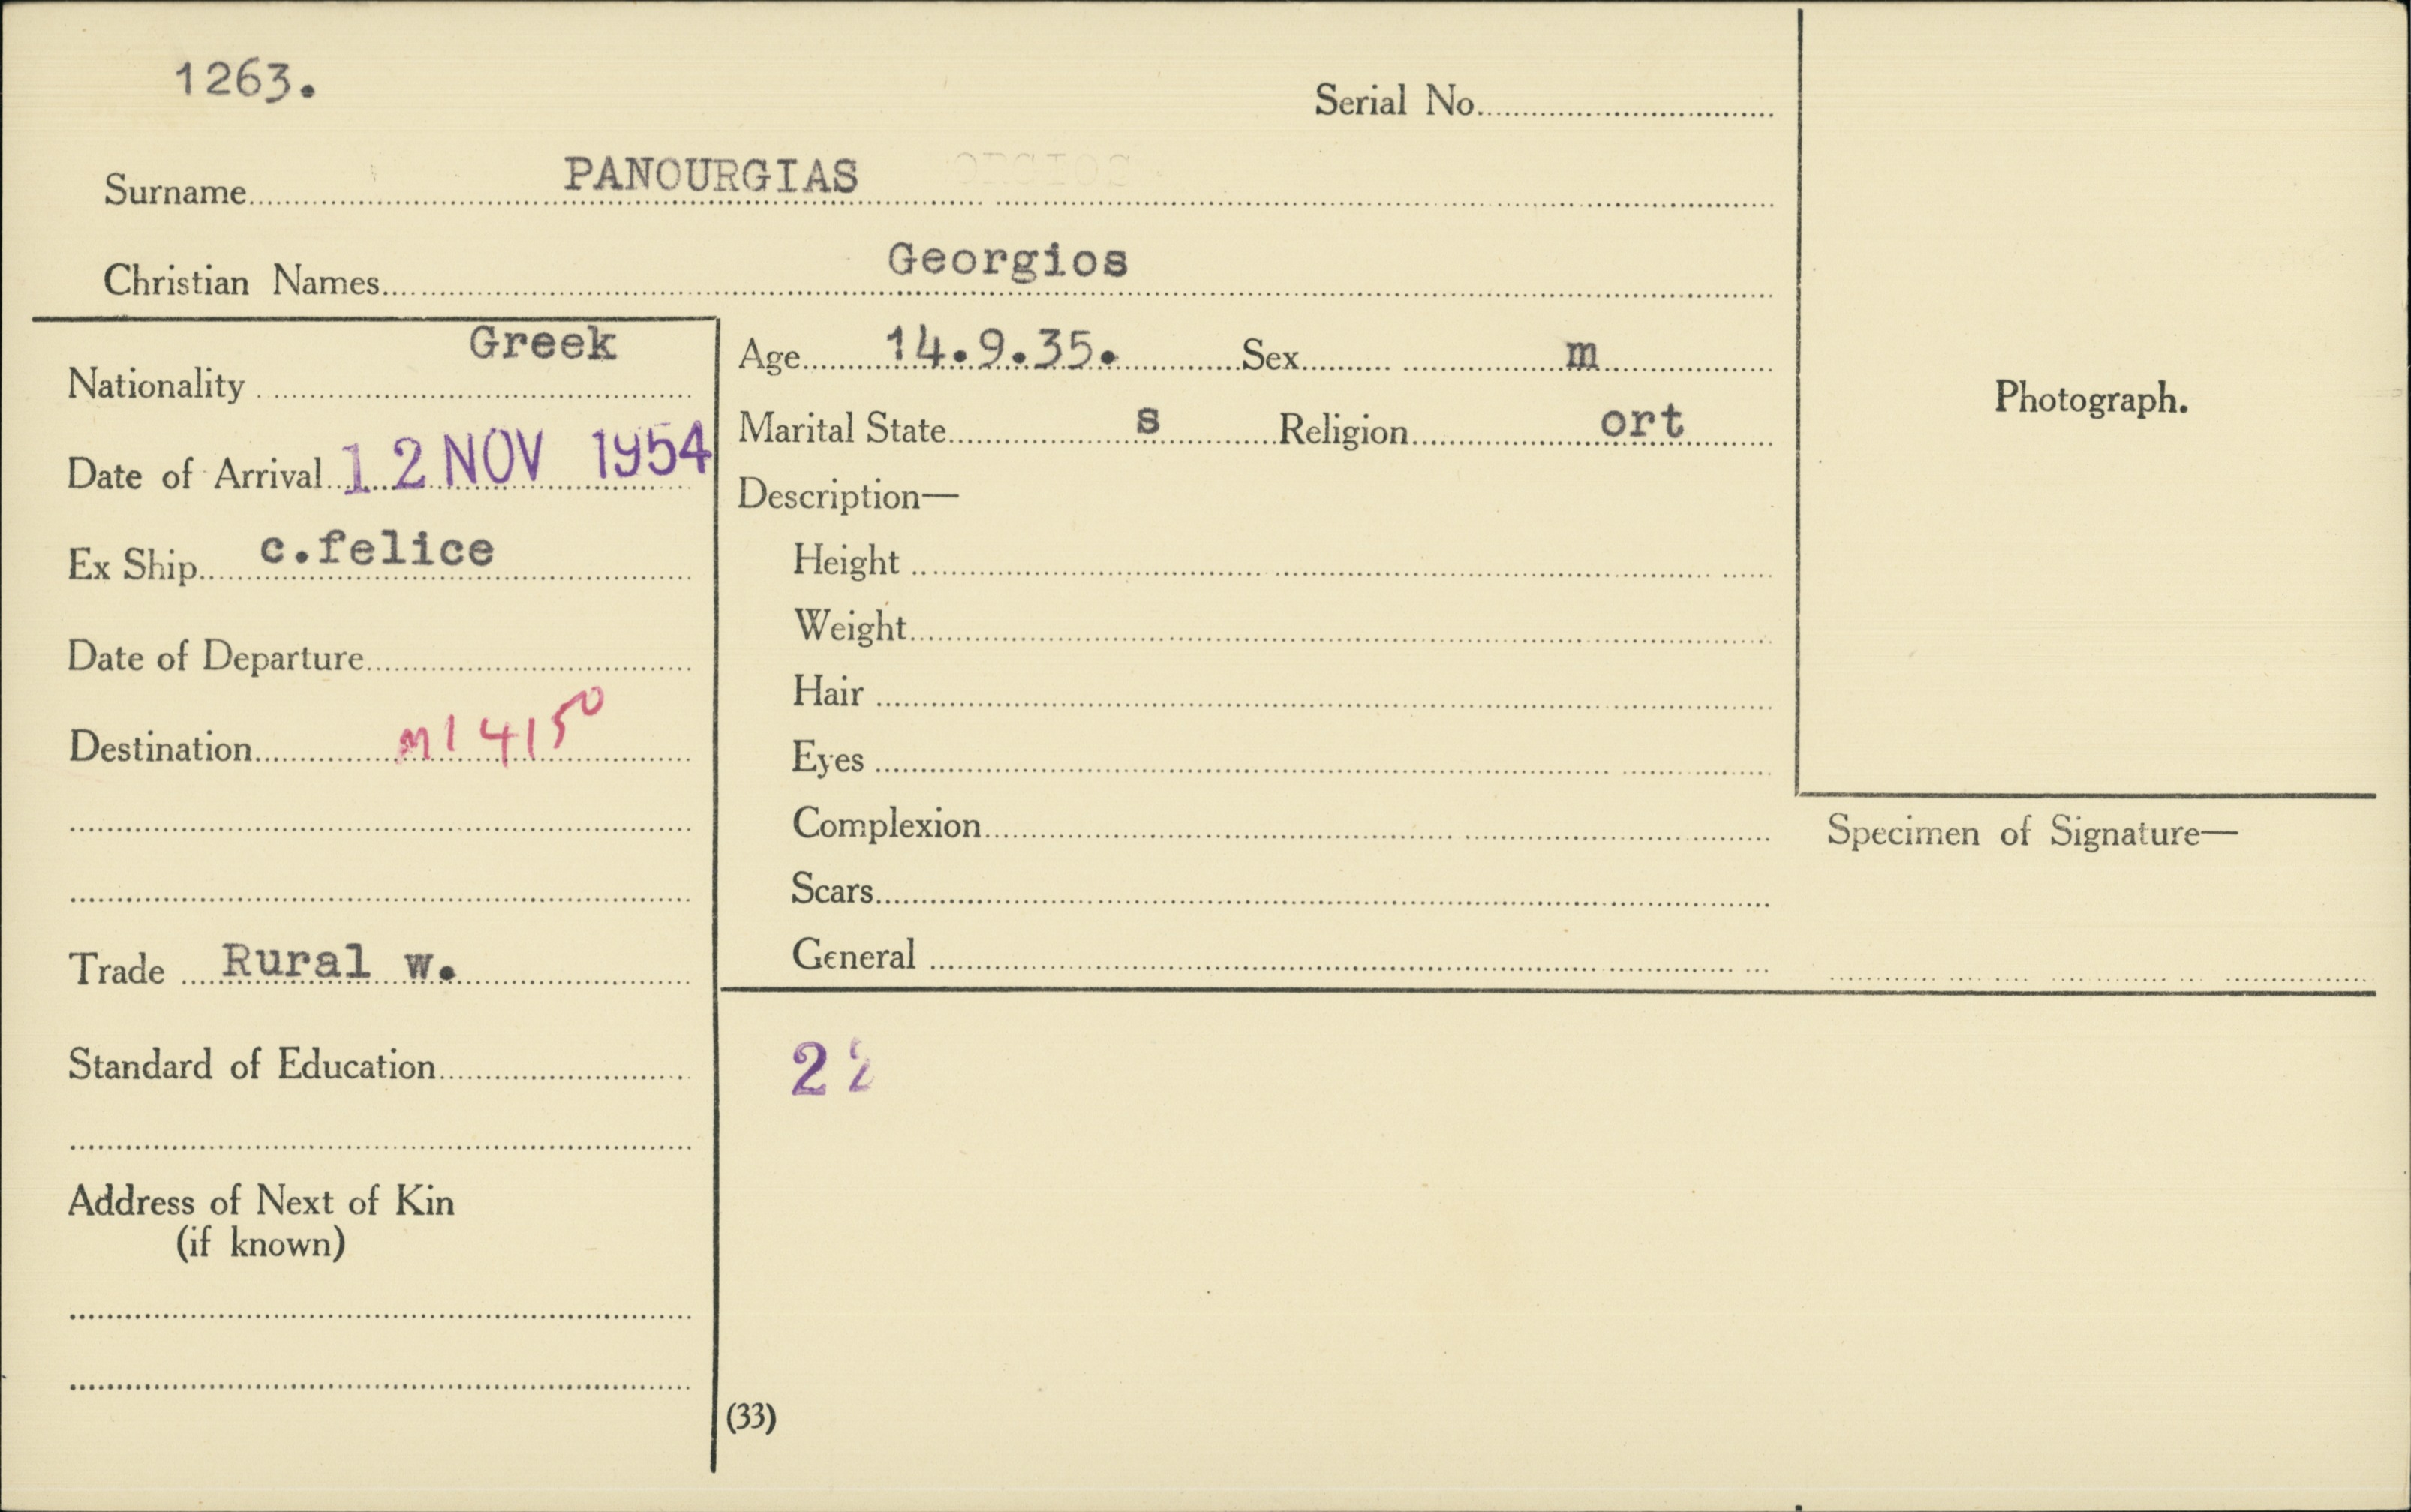 1263.
Serial No.
Surname PANOURGIAS
Christian Names Georgios
Nationality Greek
Date of Arrival 12 NOV 1954
Ex Ship c.felice
Date of Departure
Destination M1 4150
Trade Rural w.
Standard of Education
Address of Next of Kin
(if known)
Age 14.9.35. Sex m
Marital State s Religion ort
Description—
Height
Weight
Hair
Eyes
Complexion
Scars
General
22
(33)
Photograph.
Specimen of Signature—